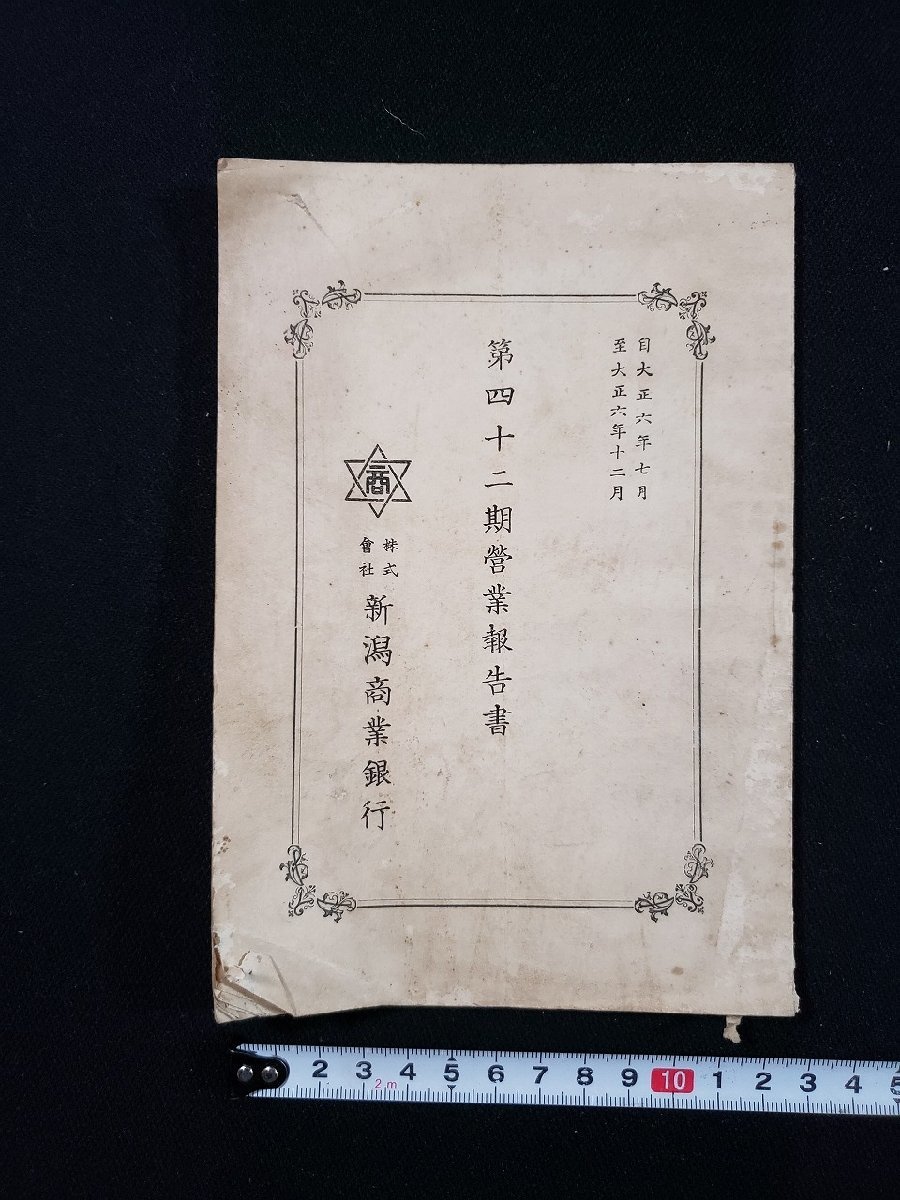 自大正六年七月
至大正六年十二月
第四十二期營業報告書
商
株式會社新潟商業銀行
2 3 4 5 6 7 8 9 10 1 2 3 4 5
2m